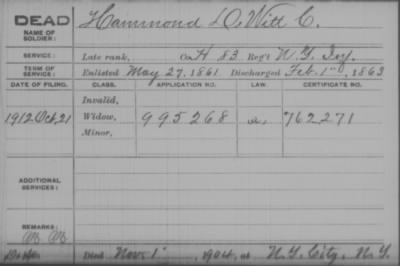 DEAD
NAME OF SOLDIER:
Hammond De Witt C.
SERVICE:
Late rank, Co. H 83 Reg't N.Y. Inf.
TERM OF SERVICE:
Enlisted May 27, 1861 Discharged Feb. 1", 1863
DATE OF FILING. CLASS. APPLICATION NO. LAW. CERTIFICATE NO.
Invalid,
1912 Oct 21 Widow, 995268 762271
Minor,
ADDITIONAL SERVICES:
REMARKS:
Died Nov. 1" , 1904, at N.Y. City, N.Y.